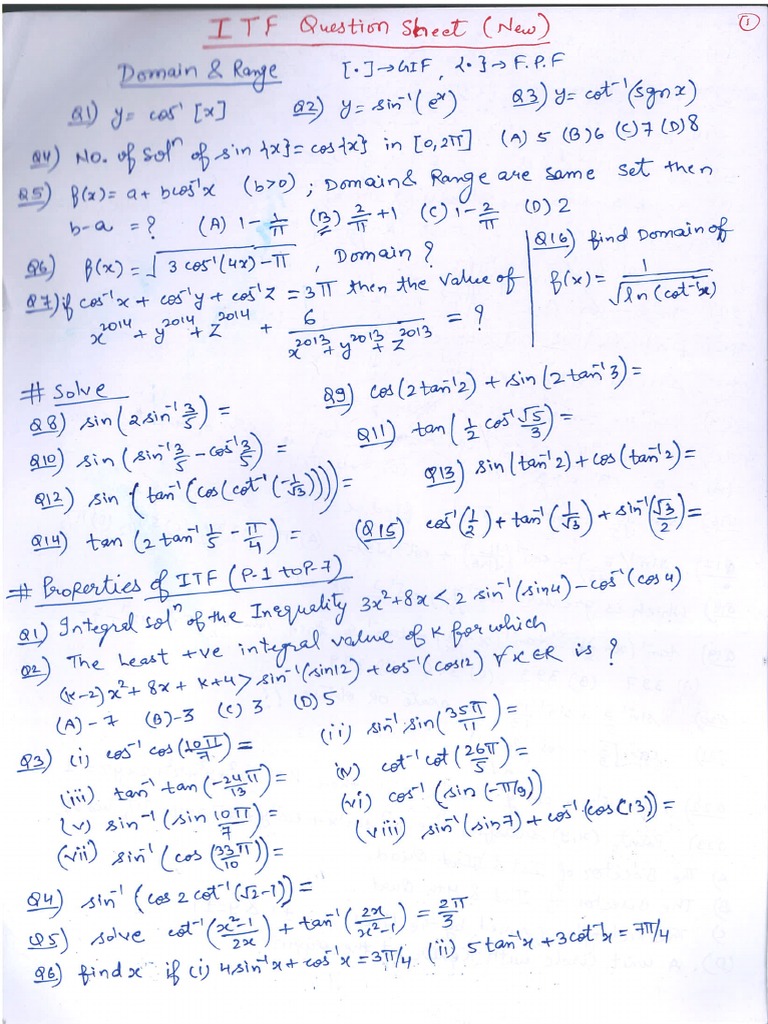 ITF Question Sheet (New)
①
Domain & Range [·]→GIF, {·}→F.P.F
Q1) y = cos⁻¹[x] Q2) y = sin⁻¹(eˣ) Q3) y = cot⁻¹(sgn x)
Q4) No. of solⁿ of sin{x} = cos{x} in [0,2π] (A) 5 (B) 6 (C) 7 (D) 8
Q5) f(x) = a + b cos⁻¹x (b>0) ; Domain & Range are same set then
b-a = ? (A) 1-1/π (B) 2/π+1 (C) 1-2/π (D) 2
Q6) f(x) = √(3cos⁻¹(4x)-π) , Domain ?
Q7) if cos⁻¹x + cos⁻¹y + cos⁻¹z = 3π then the value of
x²⁰¹⁴ + y²⁰¹⁴ + z²⁰¹⁴ + 6/(x²⁰¹³ + y²⁰¹³ + z²⁰¹³) = ?
Q16) find Domain of
f(x) = 1/√(ln(cot⁻¹x))
# Solve
Q8) sin(2 sin⁻¹ 3/5) = Q9) cos(2tan⁻¹2) + sin(2tan⁻¹3) =
Q10) sin(sin⁻¹ 3/5 - cos⁻¹ 3/5) = Q11) tan(1/2 cos⁻¹ √5/3) =
Q12) sin(tan⁻¹(cos(cot⁻¹(-1/√3)))) = Q13) sin(tan⁻¹2) + cos(tan⁻¹2) =
Q14) tan(2tan⁻¹ 1/5 - π/4) = (Q15) cos⁻¹(1/2) + tan⁻¹(1/√3) + sin⁻¹(√3/2) =
# Properties of ITF (P-1 to P-7)
Q1) Integral solⁿ of the Inequality 3x²+8x < 2 sin⁻¹(sin4) - cos⁻¹(cos4)
Q2) The Least +ve integral value of K for which
(K-2)x² + 8x + K+4 > sin⁻¹(sin12) + cos⁻¹(cos12) ∀ x∈R is ?
(A) -7 (B) -3 (C) 3 (D) 5
Q3) (i) cos⁻¹cos(10π/7) = (ii) sin⁻¹ sin(35π/11) =
(iii) tan⁻¹tan(-24π/13) = (iv) cot⁻¹cot(26π/5) =
(v) sin⁻¹(sin 10π/7) = (vi) cos⁻¹(sin(-π/9))
(vii) sin⁻¹(cos(33π/10) = (viii) sin⁻¹(sin7) + cos⁻¹(cos(13)) =
Q4) sin⁻¹(cos2cot⁻¹(√2-1)) =
Q5) solve cot⁻¹(x²-1/2x) + tan⁻¹(2x/x²-1) = 2π/3
Q6) find x if (i) 4sin⁻¹x + cos⁻¹x = 3π/4 (ii) 5tan⁻¹x + 3cot⁻¹x = 7π/4